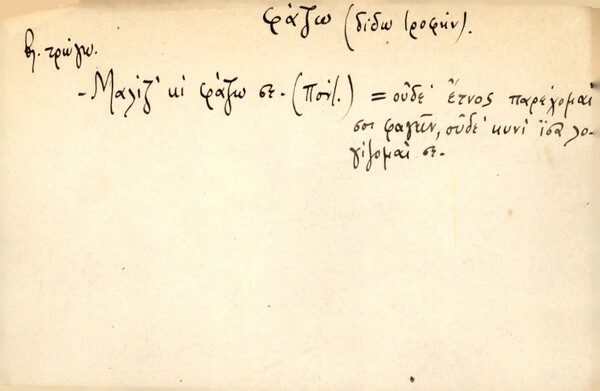 φάζω (δίδω τροφήν).
βλ. τρώγω.
- Μαλέζ' κι φάζω σε - (Πον.) = οὐδε' ἔτνος παρέχομαί
σοι φαγεῖν, οὐδε' κυνὶ ἴσα λο-
γίζομαί σε -